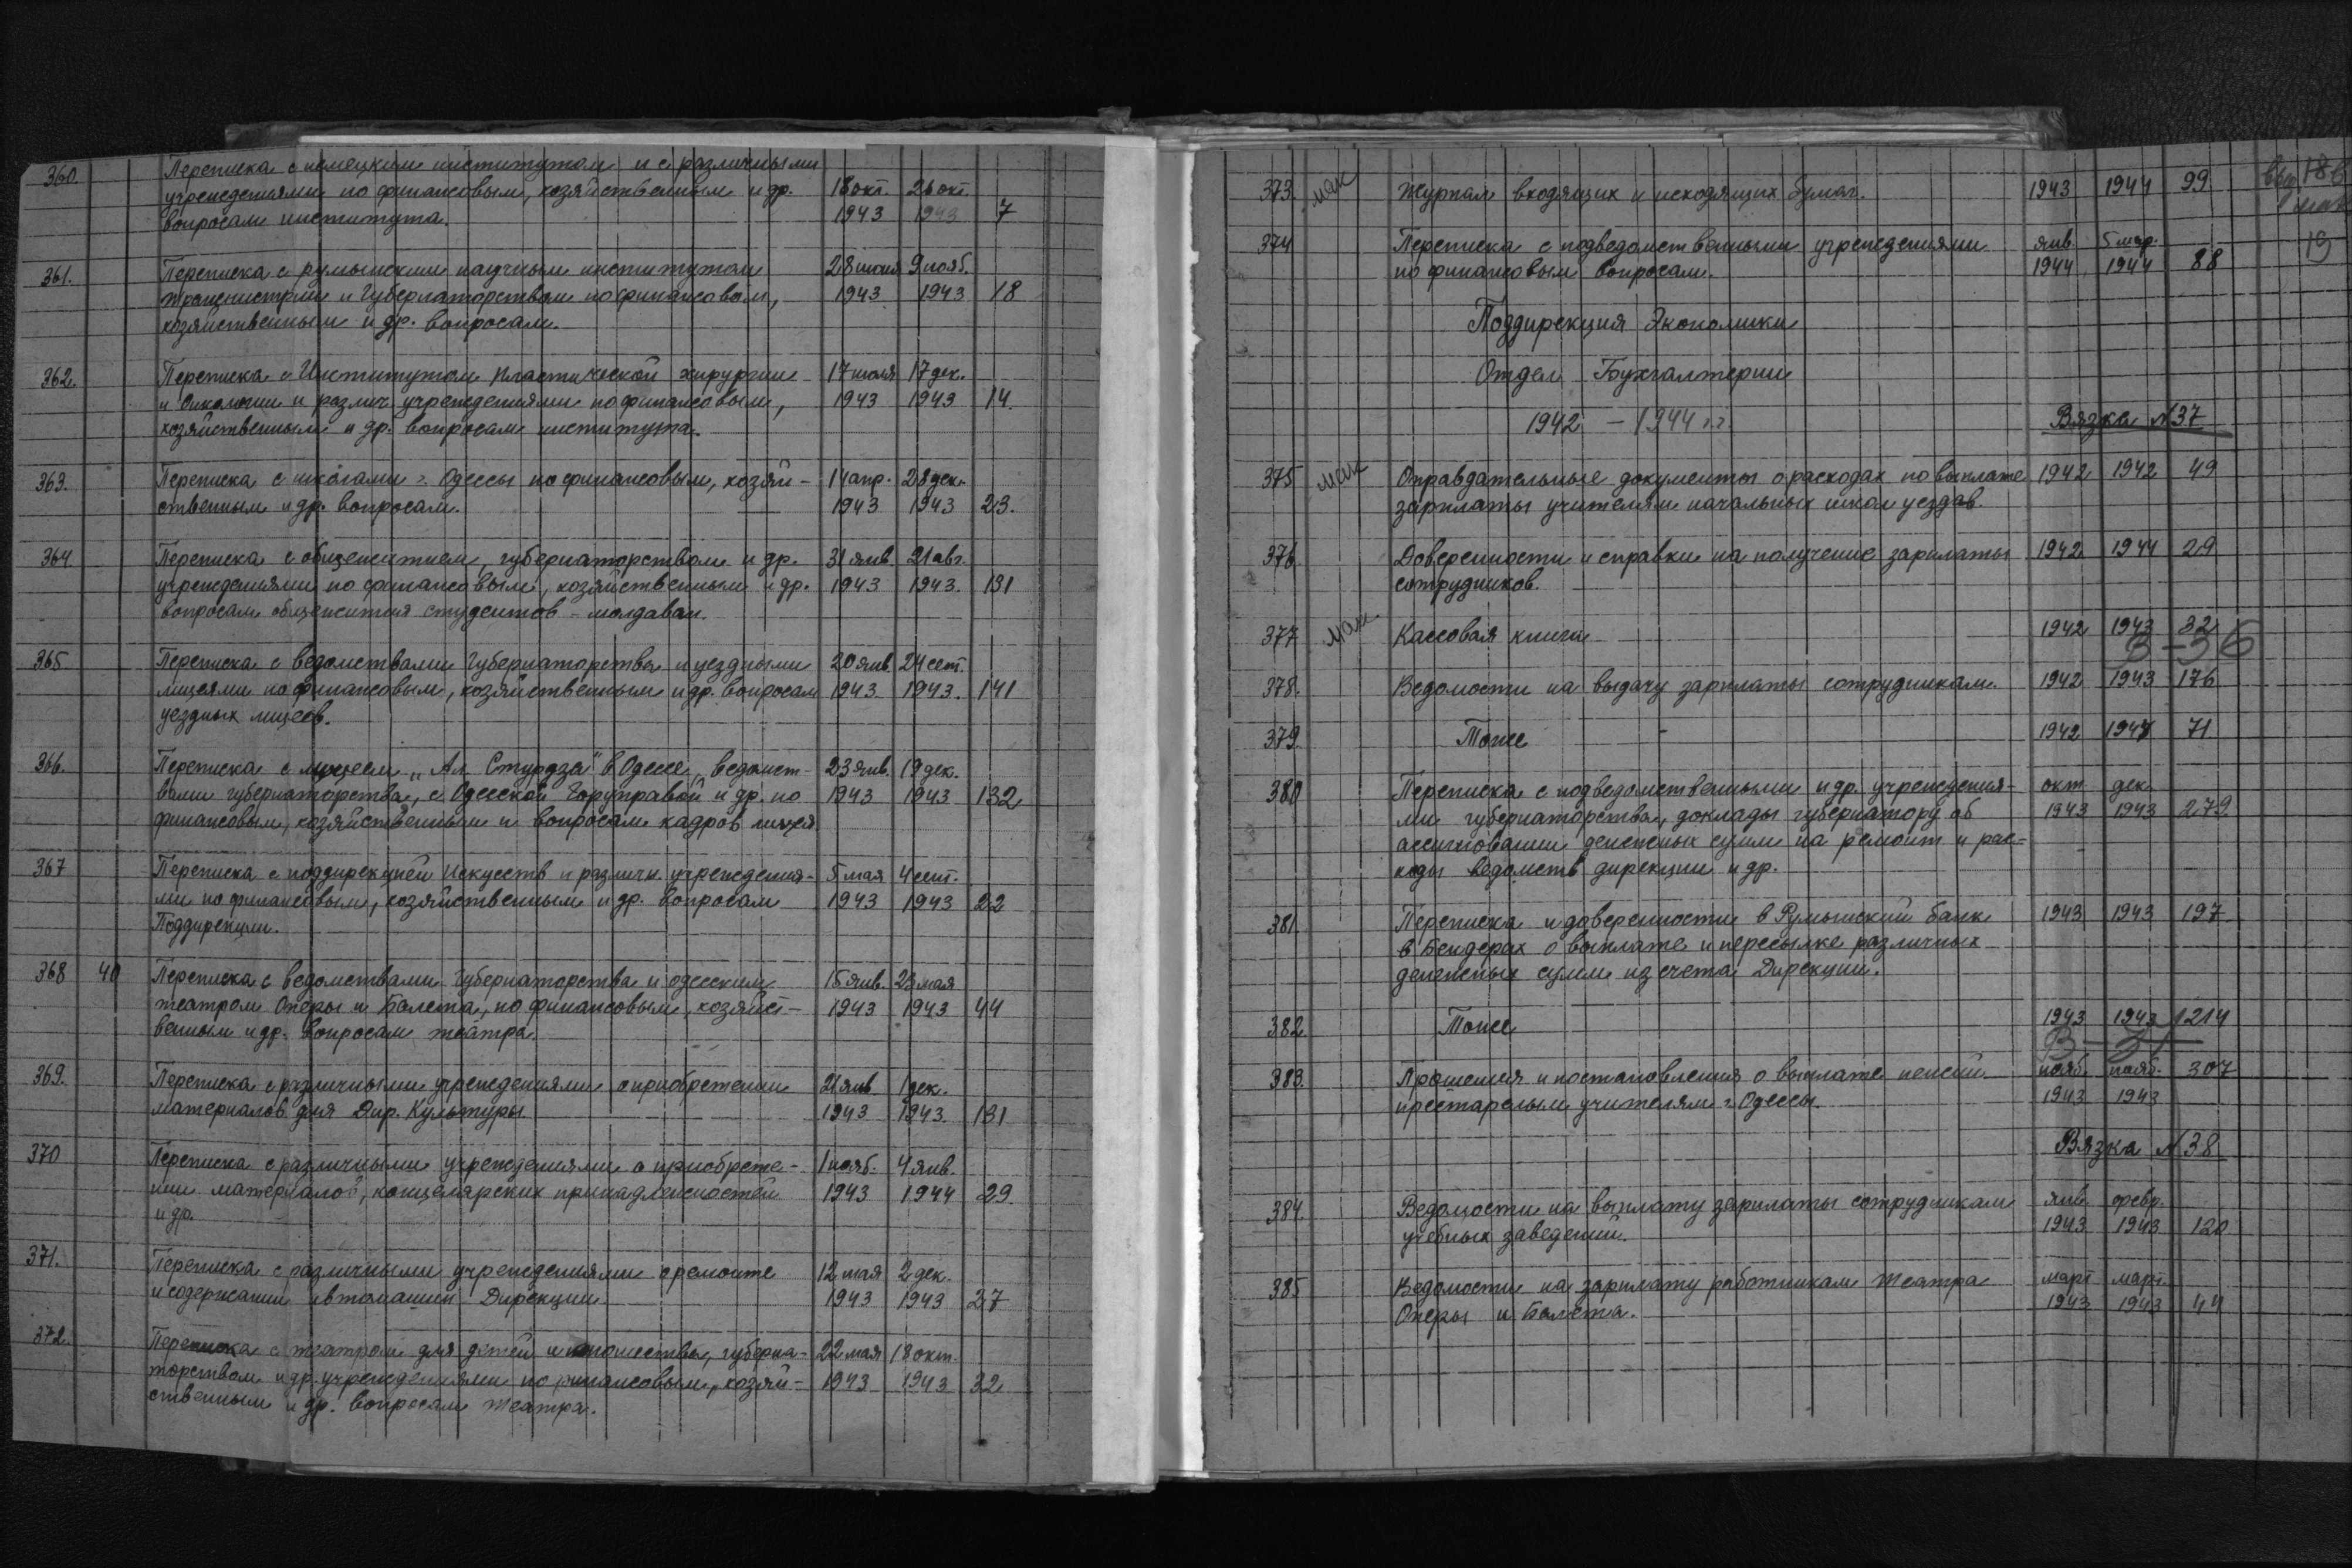 360. Переписка с немецким институтом и с различными
учреждениями по финансовым, хозяйственным и др. 18 окт. 26 окт.
вопросам института. 1943 1943 7
361. Переписка с румынским научным институтом 28 июня 9 нояб.
Транснистрии и Губернаторством по финансовым, 1943 1943 18
хозяйственным и др. вопросам.
362. Переписка с Институтом пластической хирургии 17 июня 17 дек.
и Онкологии и различ. учреждениями по финансовым, 1943 1943 14.
хозяйственным и др. вопросам института.
363. Переписка с школами г. Одессы по финансовым, хозяй- 14 апр. 28 дек.
ственным и др. вопросам. 1943 1943 23.
364. Переписка с общежитием, губернаторством и др. 31 янв. 21 авг.
учреждениями по финансовым, хозяйственным и др. 1943 1943. 131
вопросам общежития студентов - молдаван.
365 Переписка с ведомствами Губернаторства и уездными 20 янв. 24 сент.
лицеями по финансовым, хозяйственным и др. вопросам 1943 1943. 141
уездных лицеев.
366. Переписка с лицеем „Ал. Стурдза" в Одессе, ведомст- 23 янв. 19 дек.
вами губернаторства, с Одесской Горуправой и др. по 1943 1943 132
финансовым, хозяйственным и вопросам кадров лицея
367 Переписка с поддирекцией Искусств и различн. учреждения- 5 мая 4 сент.
ми по финансовым, хозяйственным и др. вопросам 1943 1943 22
Поддирекции.
368 40 Переписка с ведомствами Губернаторства и одесским 15 янв. 23 мая
театром Оперы и Балета, по финансовым, хозяйст- 1943 1943 44
венным и др. вопросам театра.
369. Переписка с различными учреждениями о приобретении 21 янв. 1 дек.
материалов для Дир. Культуры 1943 1943. 131
370 Переписка с различными учреждениями о приобрете- 1 нояб. 4 янв.
нии материалов, канцелярских принадлежностей 1943 1944 29.
и др.
371. Переписка с различными учреждениями о ремонте 12 мая 2 дек.
и содержании автомашин Дирекции 1943 1943 27
372. Переписка с театром для детей и юношества, губерна- 22 мая 18 окт.
торством и др. учреждениями по финансовым, хозяй- 1943 1943 32
ственным и др. вопросам театра.
373. мак Журнал входящих и исходящих бумаг. 1943 1944 99
374 Переписка с подведомственными учреждениями янв. 5 мар.
по финансовым вопросам. 1944 1944 88
19
Поддирекция Экономики
Отдел Бухгалтерии
1942 - 1944 гг.
Вязка №37
375 мак Оправдательные документы о расходах по выплате 1942 1942 49
зарплаты учителям начальных школ уездов.
376. Доверенности и справки на получение зарплаты 1942 1944 29
сотрудников.
377 мак Кассовая книга 1942 1943 32
В-36
378. Ведомости на выдачу зарплаты сотрудникам. 1942 1943 176
379. Тоже 1942 1944 71
380 Переписка с подведомственными и др. учреждения- окт. дек.
ми губернаторства, доклады губернатору об 1943 1943 279.
ассигновании денежных сумм на ремонт и рас-
ходы ведомств дирекции и др.
381. Переписка и доверенности в Румынский банк 1943 1943 197
в Бендерах о выплате и пересылке различных
денежных сумм из счета Дирекции.
382. Тоже 1943 1943 1214
383. Прошения и постановления о выплате пенсий нояб. нояб. 307
престарелым учителям г. Одессы. 1943 1943
Вязка №38
384. Ведомости на выплату зарплаты сотрудникам янв. февр.
учебных заведений. 1943 1943 120
385 Ведомости на зарплату работникам театра март март
Оперы и Балета. 1943 1943 44